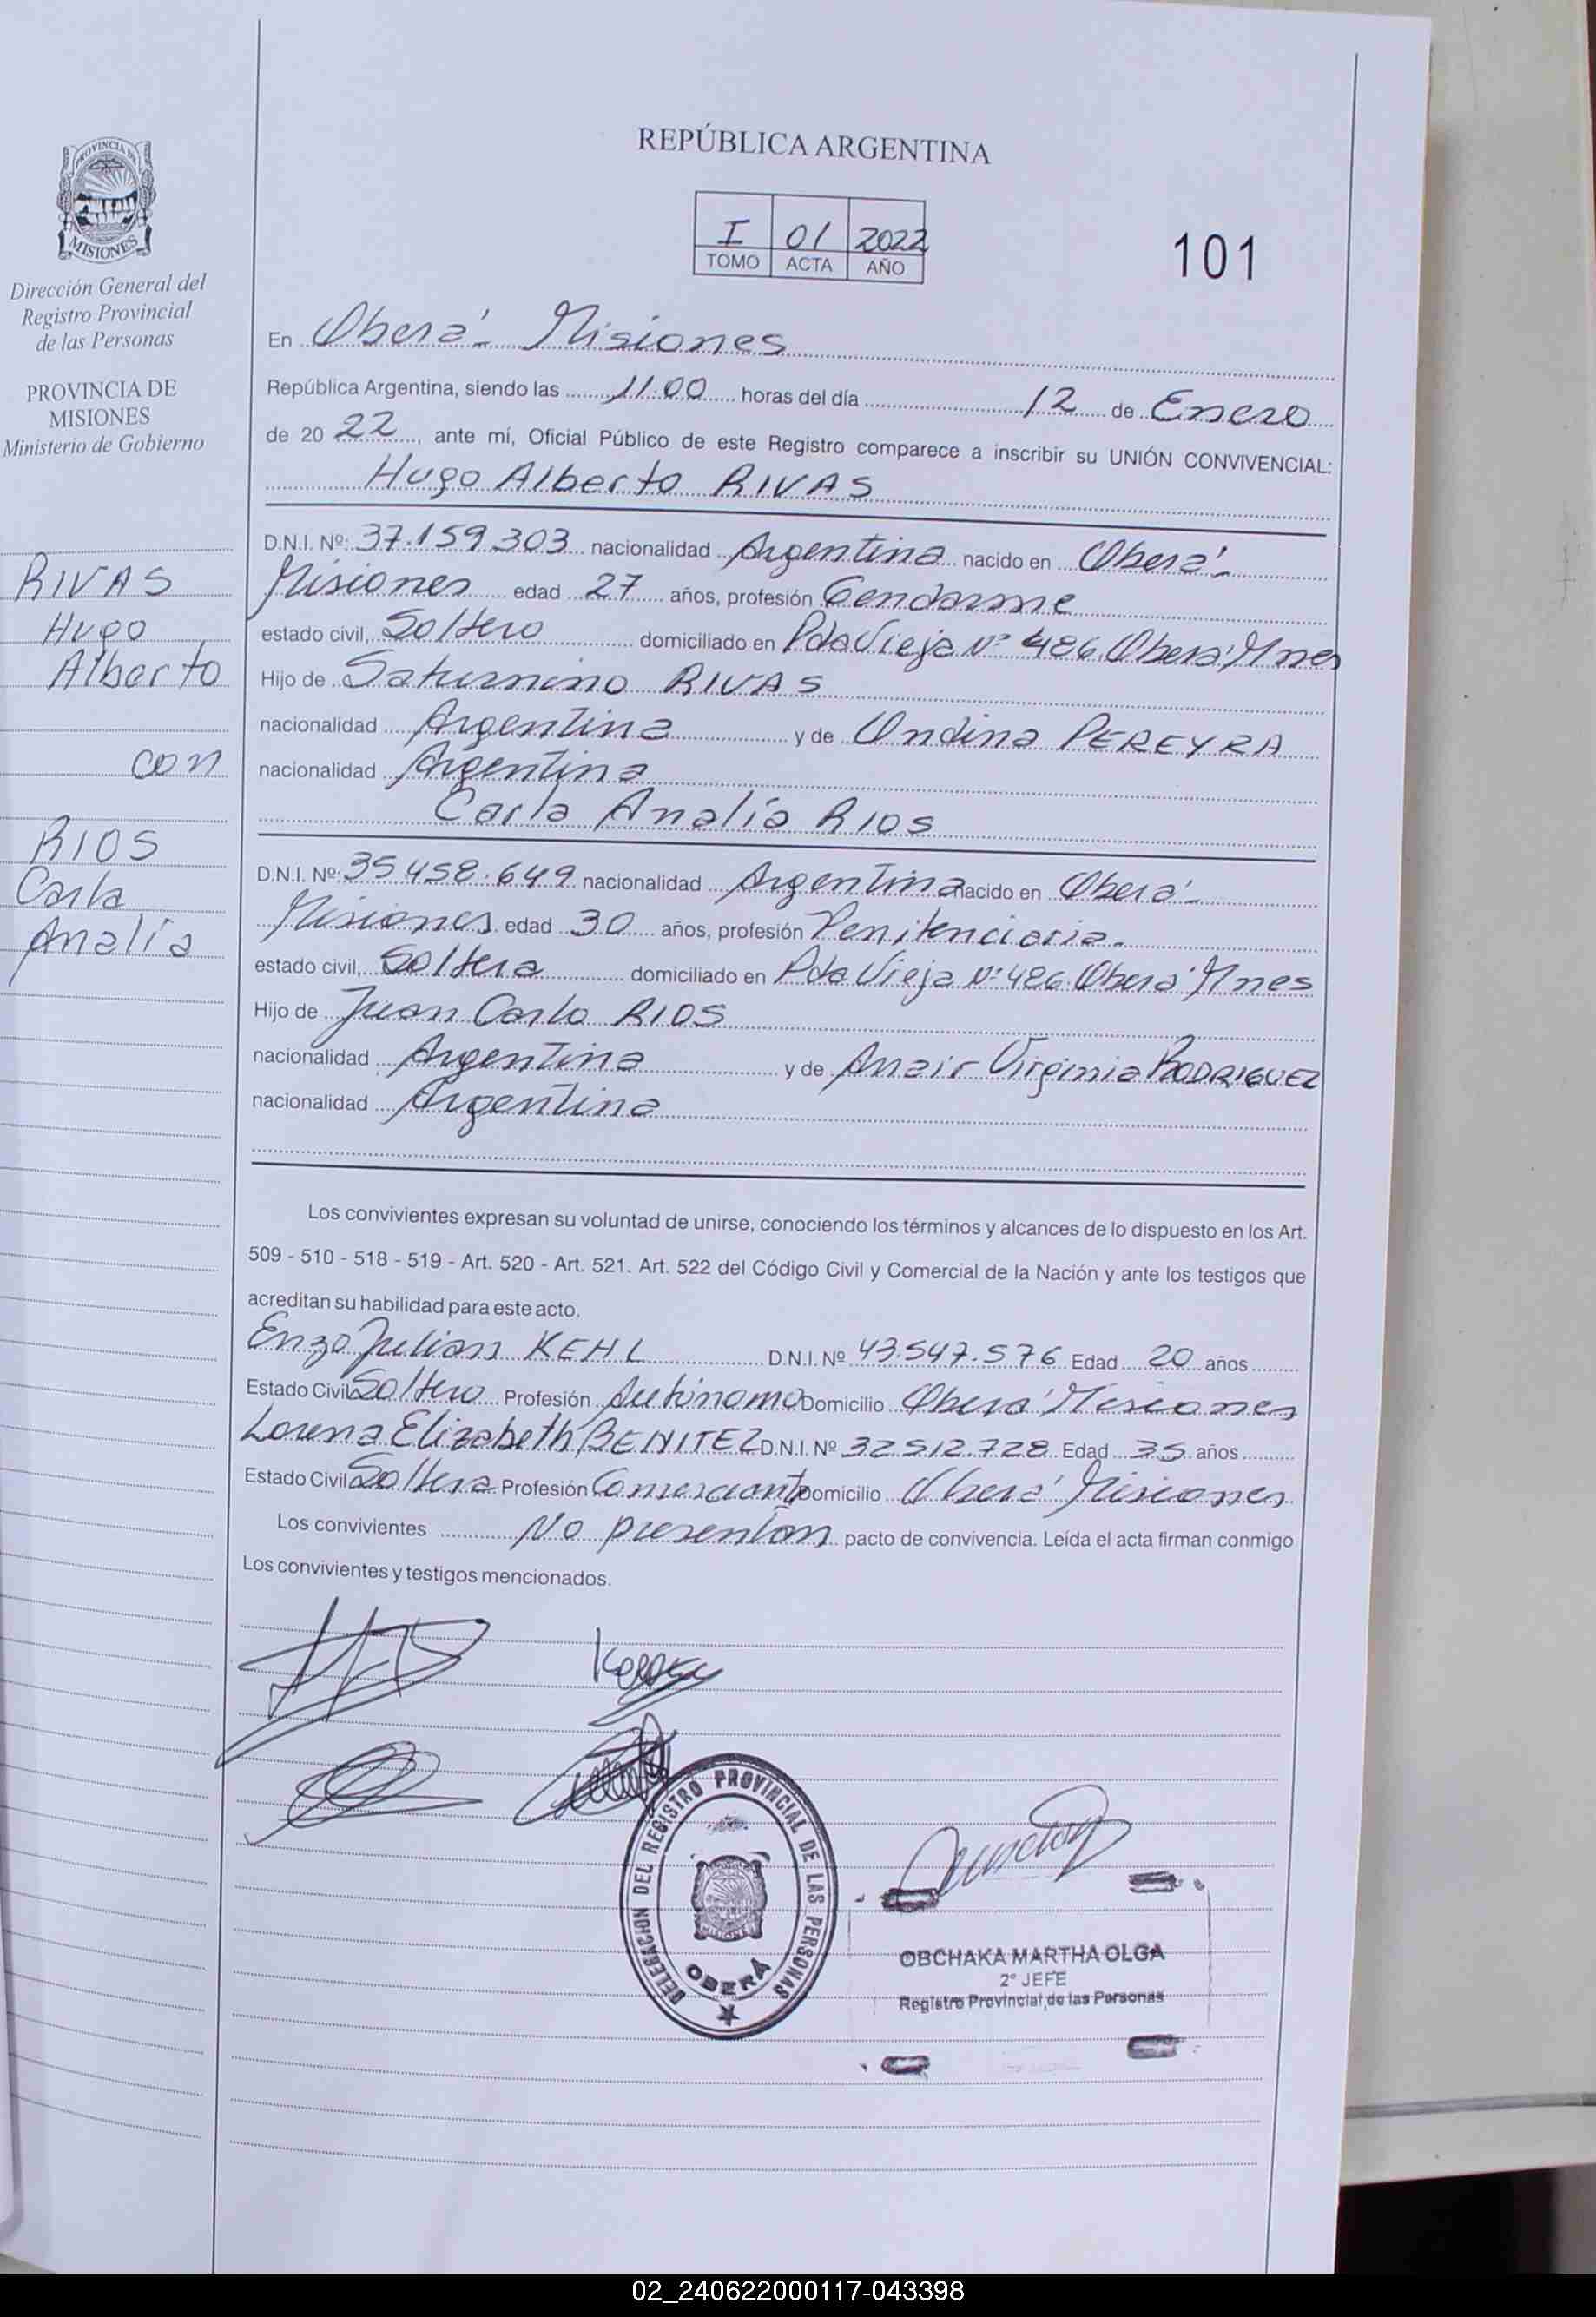 REPÚBLICA ARGENTINA
I 01 2022
TOMO ACTA AÑO
101
PROVINCIA DE
MISIONES
Dirección General del
Registro Provincial
de las Personas
PROVINCIA DE
MISIONES
Ministerio de Gobierno
RIVAS
Hugo
Alberto
con
RIOS
Carla
Analía
En Oberá - Misiones
República Argentina, siendo las 11:00 horas del día 12 de Enero
de 20 22, ante mí, Oficial Público de este Registro comparece a inscribir su UNIÓN CONVIVENCIAL:
Hugo Alberto RIVAS
D.N.I. Nº: 37.159.303 nacionalidad Argentina nacido en Oberá -
Misiones edad 27 años, profesión Gendarme
estado civil, Soltero domiciliado en Pda Vieja Nº 486 Oberá Mnes
Hijo de Saturnino RIVAS
nacionalidad Argentina y de Ondina PEREYRA
nacionalidad Argentina
Carla Analía RIOS
D.N.I. Nº: 35.458.649 nacionalidad Argentina nacido en Oberá -
Misiones edad 30 años, profesión Penitenciaria -
estado civil, Soltera domiciliado en Pda Vieja Nº 486 Oberá Mnes
Hijo de Juan Carlo RIOS
nacionalidad Argentina y de Anair Virginia RODRIGUEZ
nacionalidad Argentina
Los convivientes expresan su voluntad de unirse, conociendo los términos y alcances de lo dispuesto en los Art.
509 - 510 - 518 - 519 - Art. 520 - Art. 521. Art. 522 del Código Civil y Comercial de la Nación y ante los testigos que
acreditan su habilidad para este acto.
Enzo Julian KEHL D.N.I. Nº 43.547.576 Edad 20 años
Estado Civil Soltero Profesión Autónomo Domicilio Oberá Misiones
Lorena Elizabeth BENITEZ D.N.I. Nº 32.512.728 Edad 35 años
Estado Civil Soltera Profesión Comerciante Domicilio Oberá Misiones
Los convivientes No presentan pacto de convivencia. Leída el acta firman conmigo
Los convivientes y testigos mencionados.
DELEGACION DEL REGISTRO PROVINCIAL DE LAS PERSONAS
OBERÁ
OBCHAKA MARTHA OLGA
2º JEFE
Registro Provincial de las Personas
02_240622000117-043398